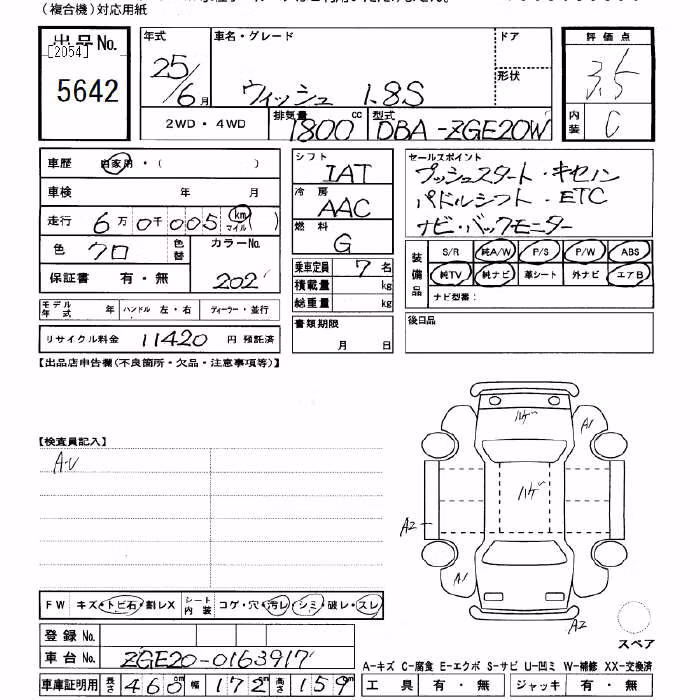 (複合機)対応用紙
出品No.
[2054]
5642
年式 車名・グレード ドア
25/6月 ウィッシュ 1.8S 形状
2WD・4WD 排気量 1800 cc 型式 DBA-ZGE20W
評価点
3.5
内装 C
車歴 自家用・( )
車検 年 月
走行 6万0千005 (km マイル)
色 クロ 色替 カラーNo. 202
保証書 有・無
モデル年式 年 ハンドル 左・右 ディーラー・並行
リサイクル料金 11420 円 預託済
シフト IAT
冷房 AAC
燃料 G
乗車定員 7名
積載量 kg
総重量 kg
書類期限
月 日
セールスポイント
プッシュスタート・キセノン
パドルシフト・ETC
ナビ・バックモニター
装備品 S/R 純A/W P/S P/W ABS
純TV 純ナビ 革シート 外ナビ エアB
ナビ型番:
後日品
【出品店申告欄(不良箇所・欠品・注意事項等)】
【検査員記入】
A-U
ハゲ
A1
ハゲ
A2
A1
A2
スペア
FW キズ・トビ石・割レX シート内装 コゲ・穴・汚レ・シミ・破レ・スレ
登録No.
車台No. ZGE20-0163917
車庫証明用 長さ 460m 幅 172m 高さ 159m
A-キズ C-腐食 E-エクボ S-サビ U-凹ミ W-補修 XX-交換済
工具 有・無 ジャッキ 有・無